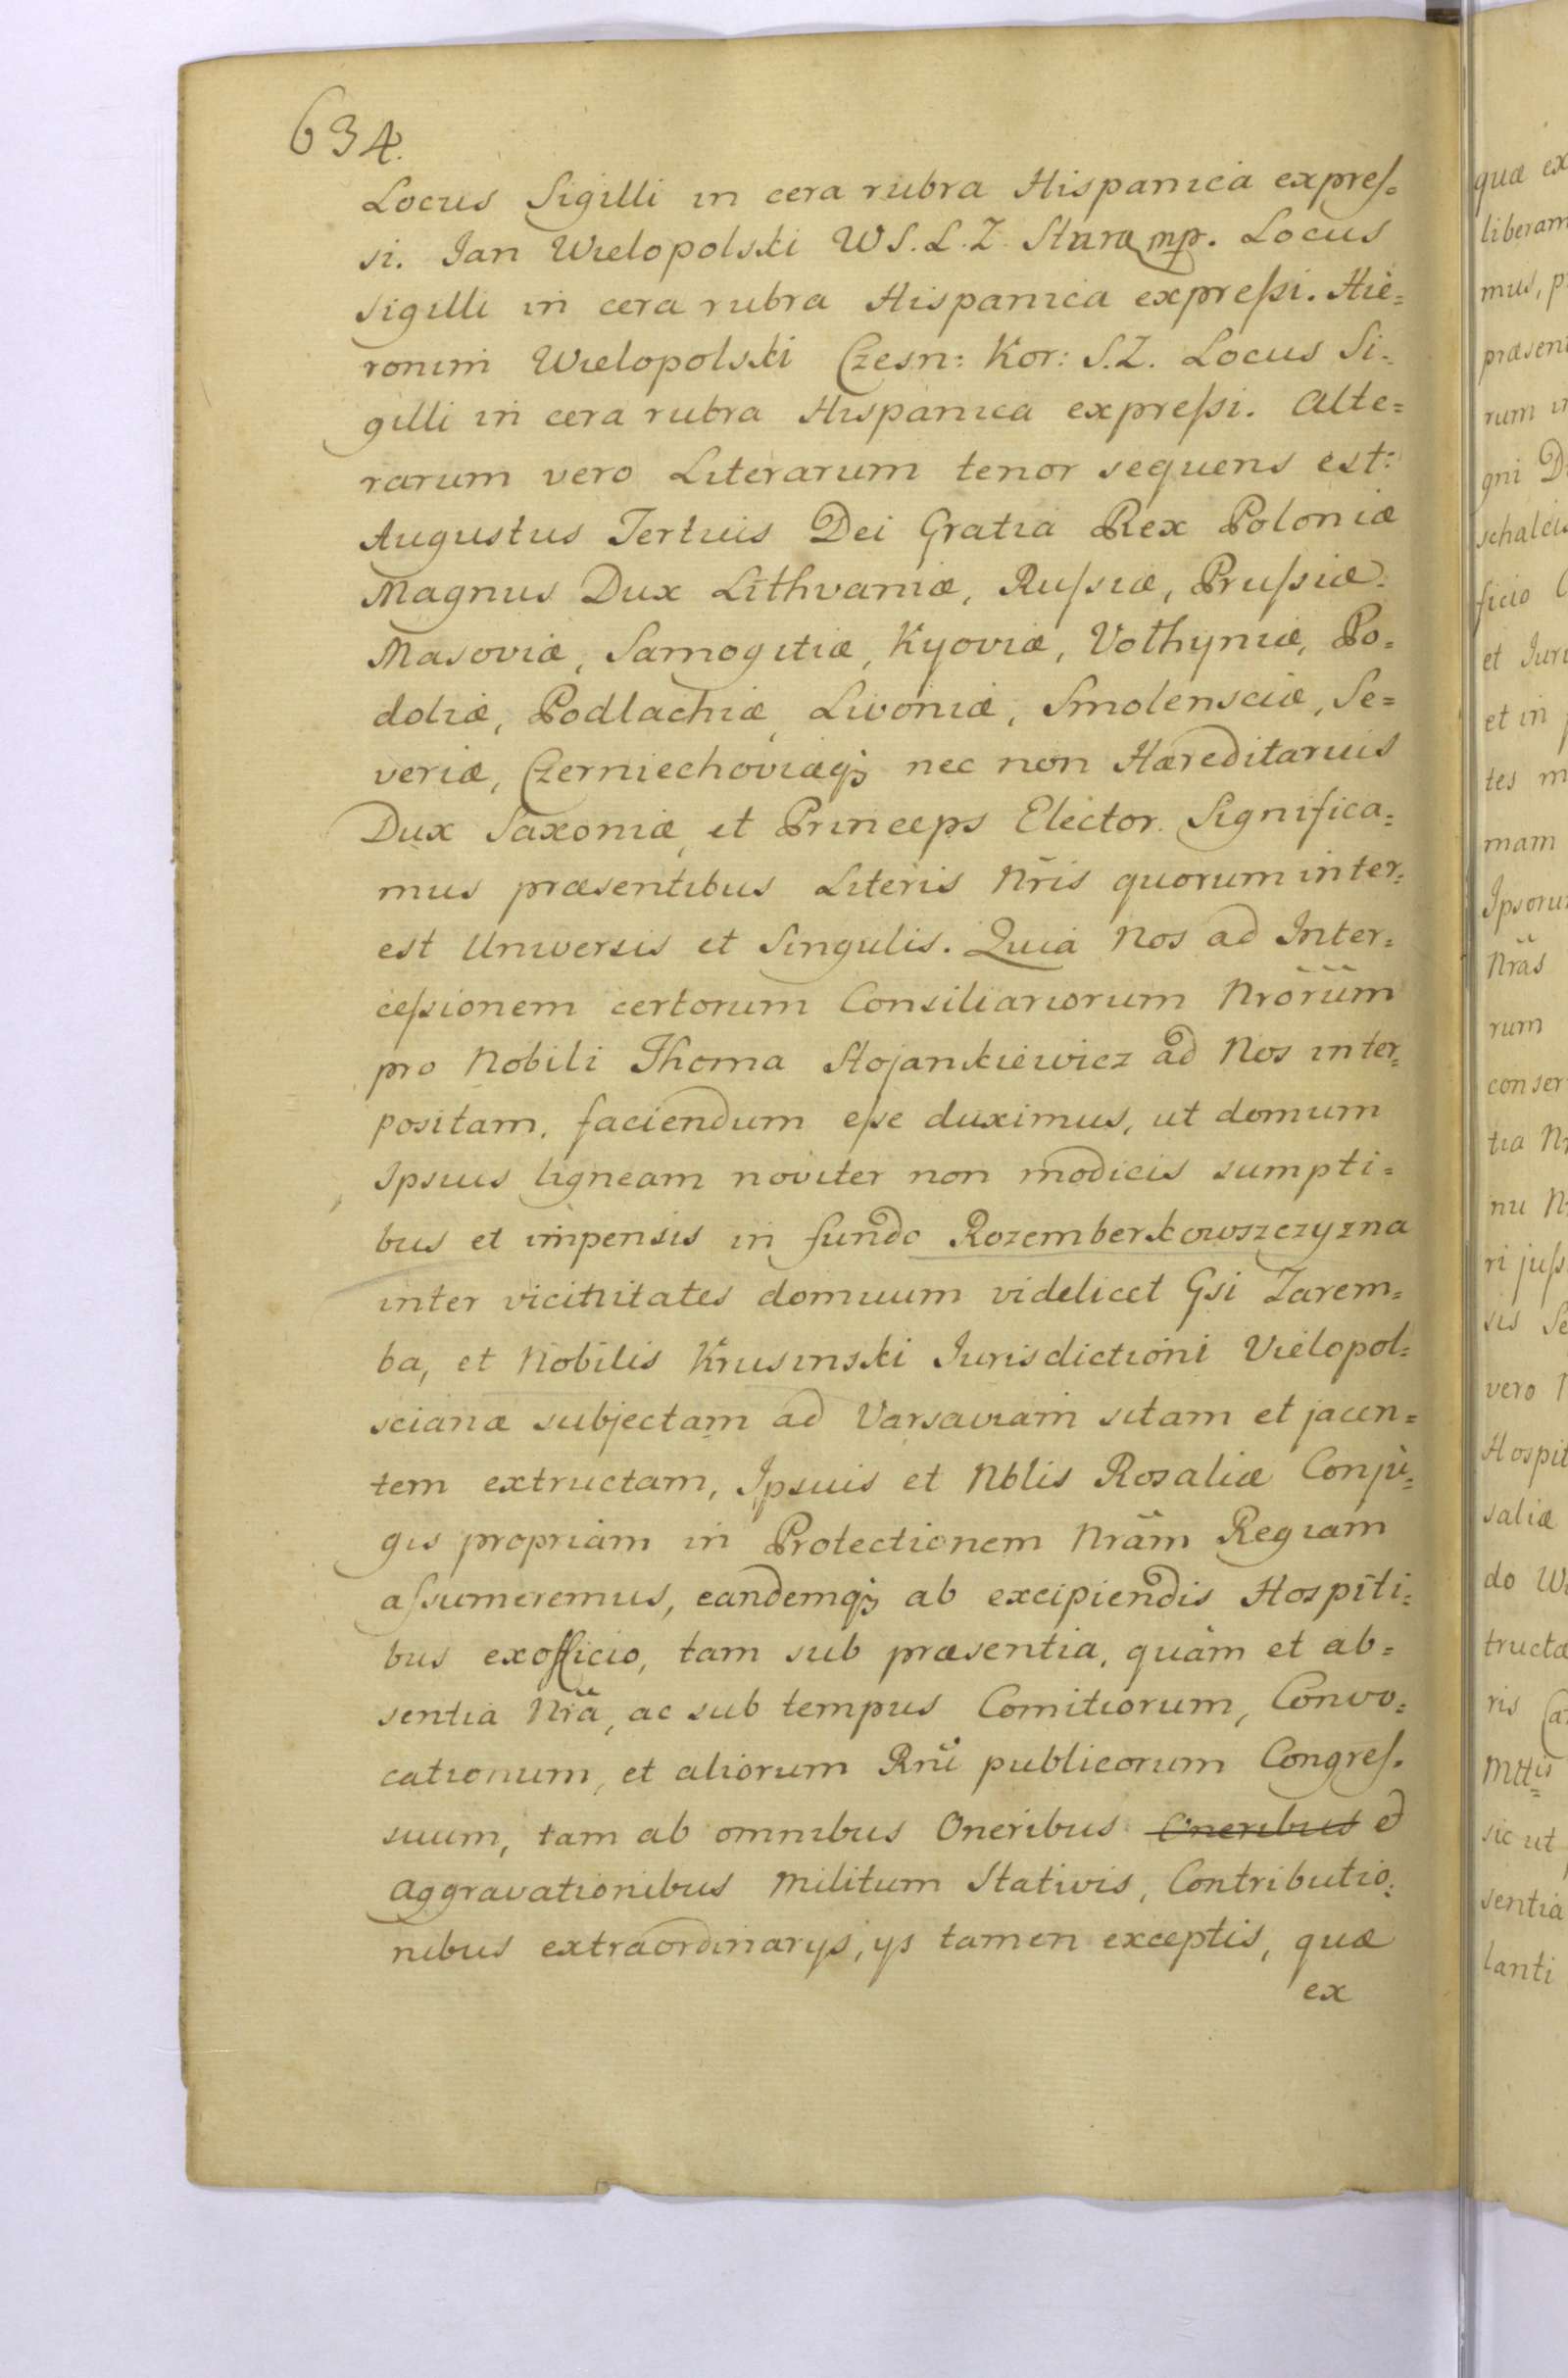 634.
Locus Sigilli in cera rubra Hispanica expreſ=
si. Jan Wielopolski W S. L. Z. Stura mp. Locus
Sigilli in cera rubra Hispanica expreſsi. Hie=
ronim Wielopolski Czesn: Kor: S.Z. Locus Si=
gilli in cera rubra Hispanica expreſsi. Alte=
rarum vero Literarum tenor sequens est:
Augustus Tertius Dei Gratia Rex Poloniæ
Magnus Dux Lithvaniæ, Ruſsiæ, Pruſsiæ.
Masoviæ, Samogitiæ, Kyoviæ, Volhyniæ, Po=
doliæ, Podlachiæ, Livoniæ, Smolensciæ, Se=
veriæ, Czerniechoviæq̃ nec non Hæreditarius
Dux Saxoniæ, et Princeps Elector. Significa=
mus præsentibus Literis Nr̃is quorum inter=
est Universis et Singulis. Quia Nos ad Inter=
ceſsionem certorum Consiliariorum Nrõrũm
pro Nobili Thoma Stojankiewicz ad Nos inter=
positam, faciendum eſse duximus, ut domum
Ipsius ligneam noviter non modicis sumpti=
bus et impensis in fundo Rozemberkowszczyzna
inter vicinitates domuum videlicet Gsi Zarem=
ba, et Nobilis Krusinski Jurisdictioni Vielopol=
scianæ subjectam ad Varsaviam sitam et jacen=
tem extructam, Ipsius et Nblis Rosaliæ Conju=
gis propriam in Protectionem Nrãm Regiam
aſsumeremus, eandemq̃ ab excipiendis Hospiti=
bus exofficio, tam sub præsentia, quàm et ab=
sentia Nrã, ac sub tempus Comitiorum, Convo=
cationum, et aliorum Rni publicorum Congreſ=
suum, tam ab omnibus Oneribus Oneribus et
Aggravationibus Militum Stativis, Contributio=
nibus extraordinarys, ys tamen exceptis, quæ
ex
quæ ex
liberam
mus, p
præsen
rum i
gni D
schalcis
ficio C
et Juri
et in
tes m
mam
Ipsoru
Nrãs
rum
conser
tia N
nu N
ri juſs
sis Se
vero
Hospit
saliæ
do W
tructæ
ris Ca
Mttis
sic ut
sentia
lanti